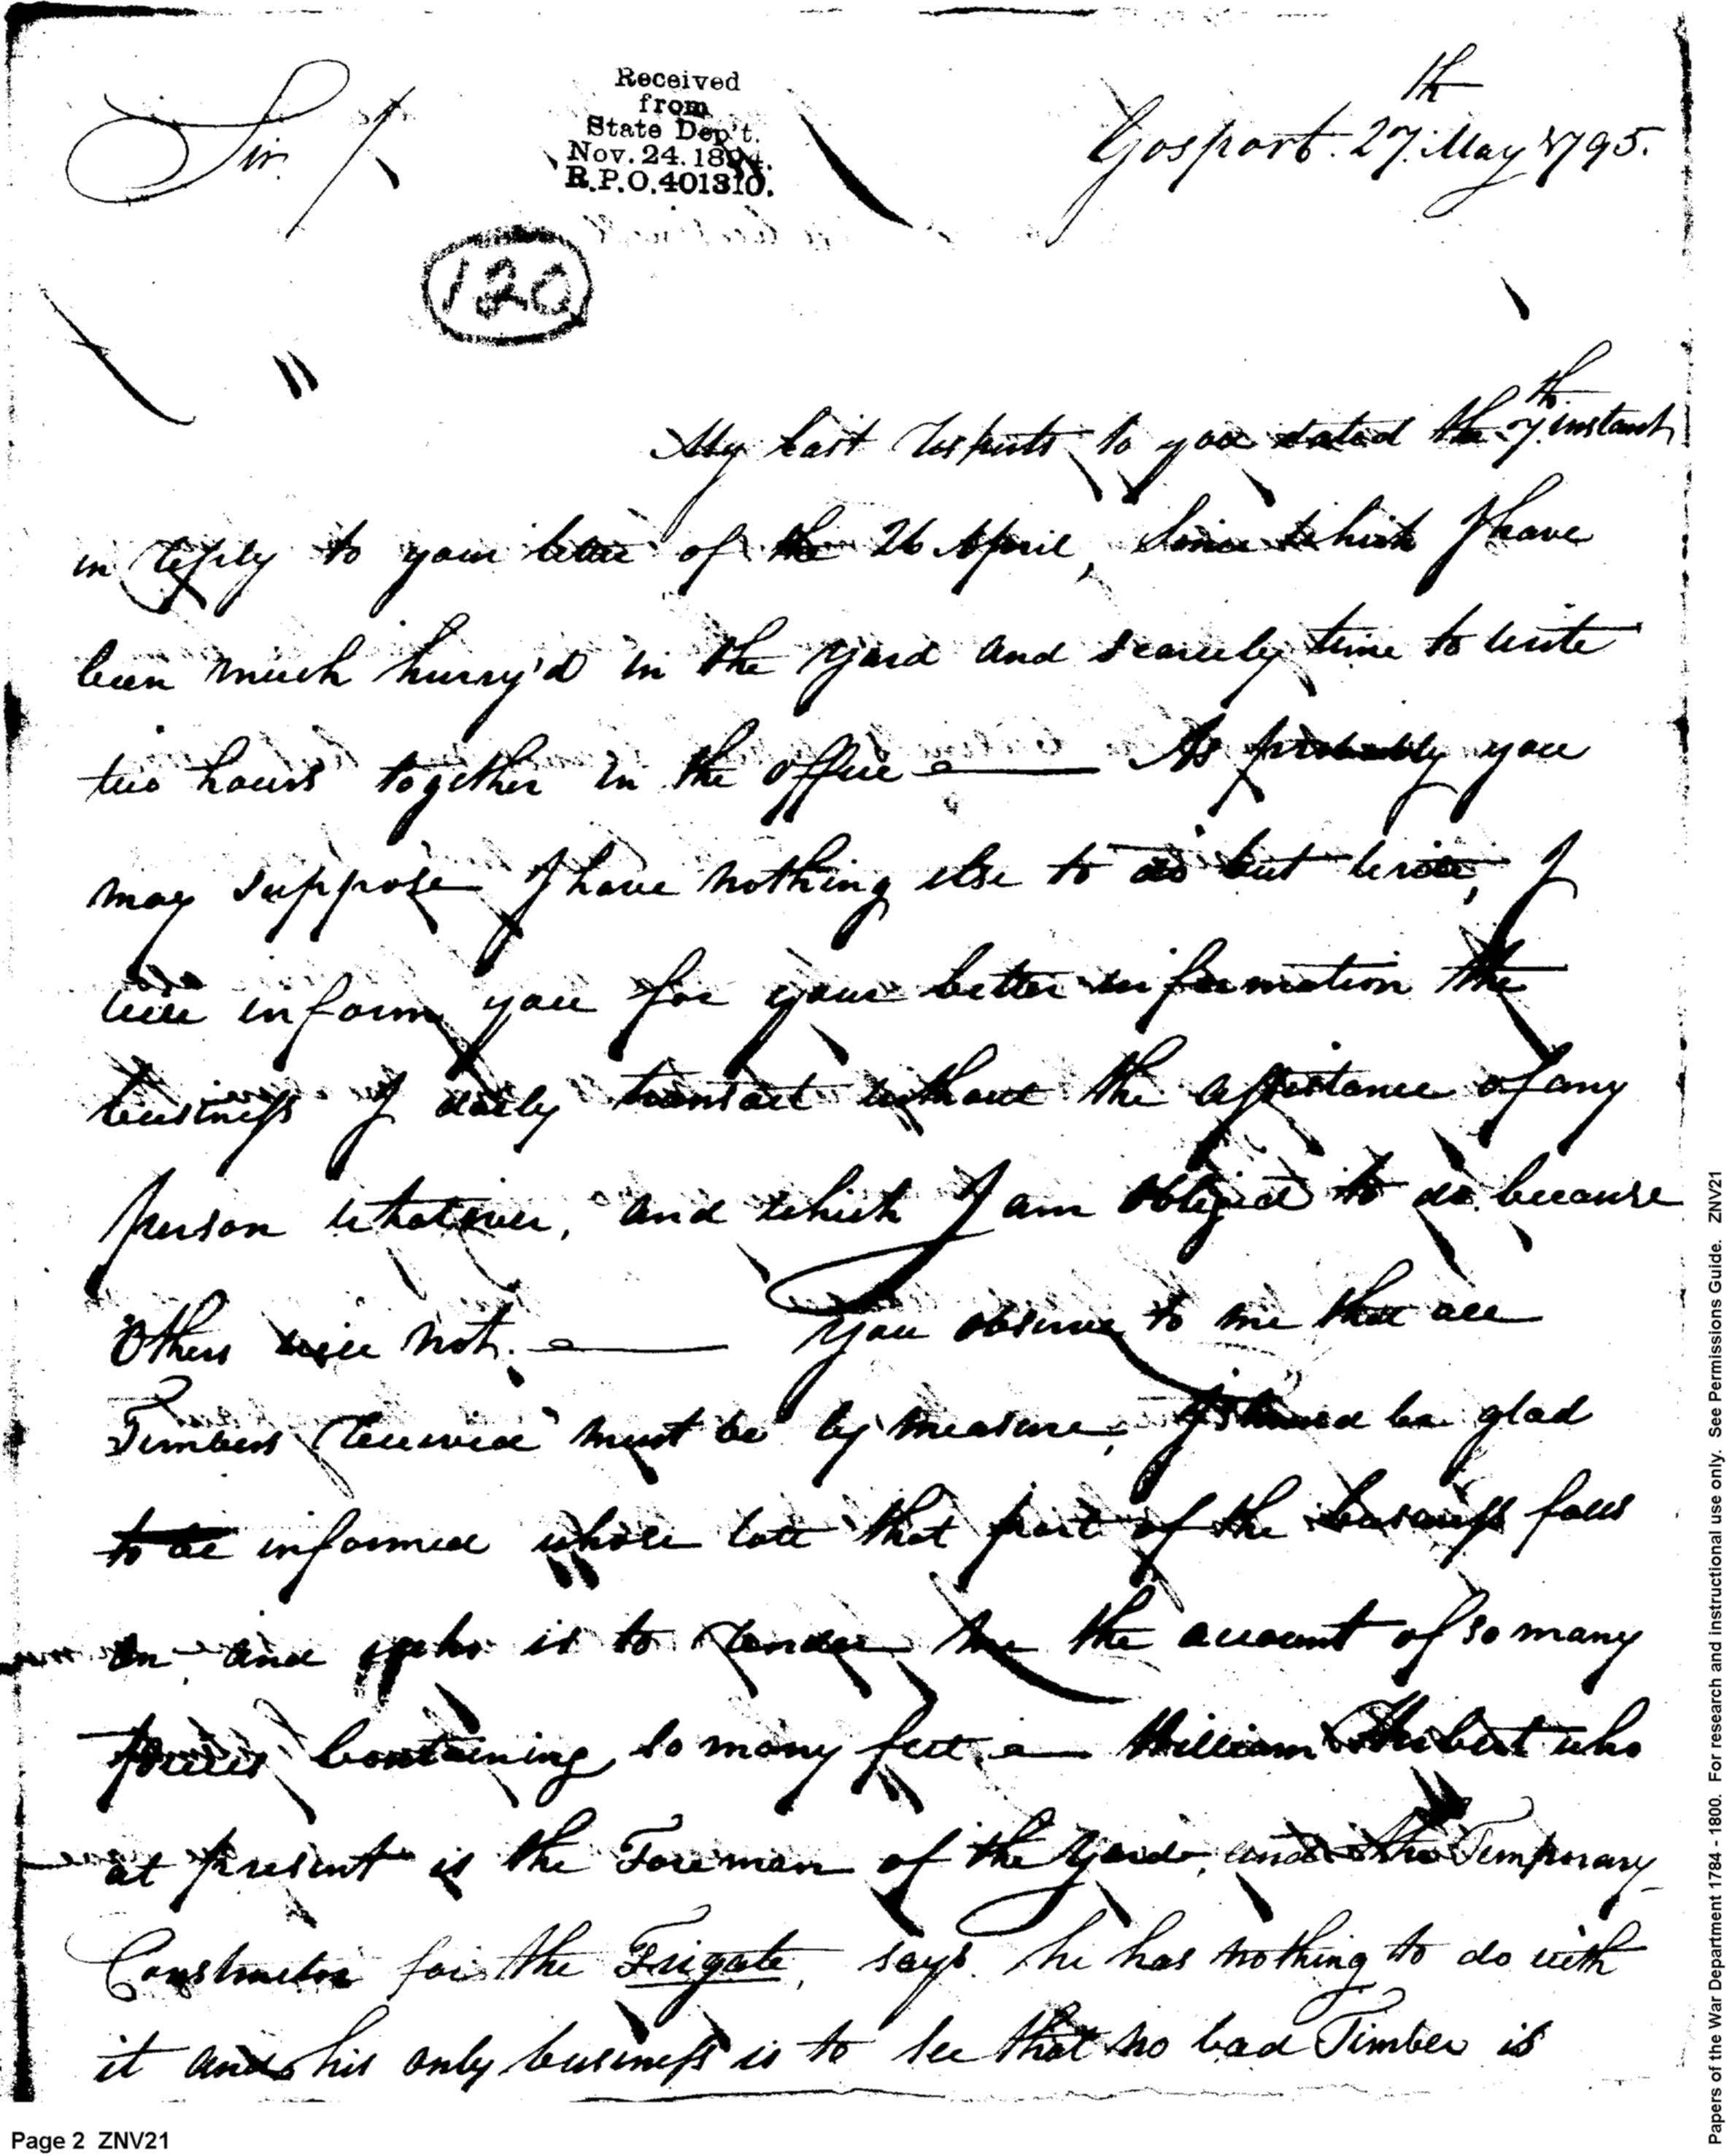 Sir /
Received
from
State Dep't.
Nov. 24. 1894.
R.P.O. 401310.
Gosport. 27th May 1795.
120
My last respects to you dated the 7th instant
in reply to your letter of the 26 April, Since which I have
been much hurry'd in the Yard and scarcely time to write
two hours together in the office — As probably you
may suppose I have nothing else to do but write, I
will inform you for your better information the
business I daily transact without the assistance of any
person whatever, and which I am obliged to do because
Others will not. — You observe to me that all
Timbers received must be by measure, I should be glad
to be informed whose lott that part of the business falls
on and who is to render me the account of so many
pieces containing so many feet. — William who
at present is the Foreman of the Yard, and the Temporary
Constructor for the Frigate, says he has nothing to do with
it and his only business is to see that no bad Timber is
Page 2 ZNV21
Papers of the War Department 1784 - 1800. For research and instructional use only. See Permissions Guide. ZNV21